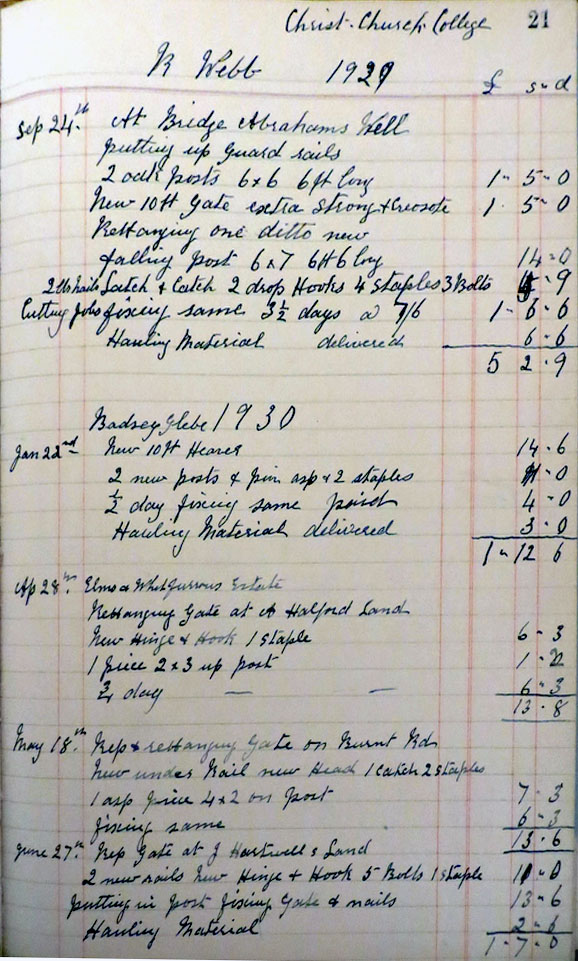 Christ. Church College 21
R Webb 1929
£ s d
Sep 24th At Bridge Abrahams Well
putting up guard rails
2 oak posts 6x6 6ft long 1 - 5 - 0
New 10ft Gate extra strong + Creosote 1 - 5 - 0
Rehanging one ditto new
falling Post 6x7 6ft6 long 14 - 0
2 lbs nails Latch & Catch 2 drop Hooks 4 Staples 3 Bolts 9
Cutting fixing same 3½ days @ 7/6 1 - 6 - 6
Hauling Material delivered 6 - 6
5 2 - 9
Badsey Glebe 1930
Jan 22nd New 10ft 14 - 6
2 new posts & pin asp & 2 staples 11 - 0
½ day fixing same paid 4 - 0
Hauling Material delivered 3 - 0
1 - 12 6
Ap 28th Elms & Estate
Rehanging Gate at A Halford Land
New Hinge & Hook 1 Staple 6 - 3
1 piece 2x3 up post 1 - 2
¾ day — — 6 - 3
13 - 8
May 18th Rep & rehanging Gate on Burnt Rd
New under Rail new Head 1 Catch 2 Staples
1 asp piece 4x2 on Post 7 - 3
fixing same 6 - 3
13 - 6
June 27th Rep Gate at J Hartwell s Land
2 new rails New Hinge & Hook 5 Bolts 1 Staple 11 - 0
putting in Post fixing Gate & nails 13 - 6
Hauling Material 2 - 6
1 - 7 - 0